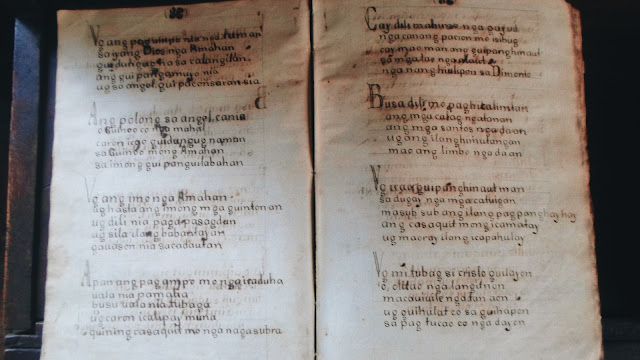 Vg ang pag ampo nia nga tanan
sa iyang Dios nga Amahan
gui dungug nia sa calangitan
ang gui pangamuyo nia
ug sa angel gui paconsaran sia
Ang polong sa angel cania
o Ginoo co nga mahal
caron igo guidungug naman
sa Ginoo mong Amahan
sa imong gui panguilabahan
Vg ang imo nga Amahan
ug hasta ang imong mga guinton an
ug dili nia paga pasagdan
ug sila ilang babantayan
gauason nia sa cadautan
Apan ang pag ampo mo nga iraduha
uala nia pamatia
busa uala nia tubaga
ug caron icalipay muna
quining casaquit mo nga naga subra
Cay dili mahimo nga gayud
nga canang pacien mo isibug
cay mao man ang gui panghinaut
sa mga tao nga
nga nang hiulipon sa Dimonio
Busa dili mo pag hicalimtan
ang mga catag ngatanan
ang mga santos nga daan
ug ang ilang hinutungan
mao ang limbo nga daan
Vg sila gui panghinaut man
sa dugay nga mga catuigan
masub sub ang ilang pag pang hay hay
ang casaquit mong icamatay
ug maoray ilang icapahulay
Vg mi tubag si cristo guilayon
o, nga langitnon
macauiuili nga tan aon
ug guihulat co sa guihapon
sa pag tucao co nga dayon